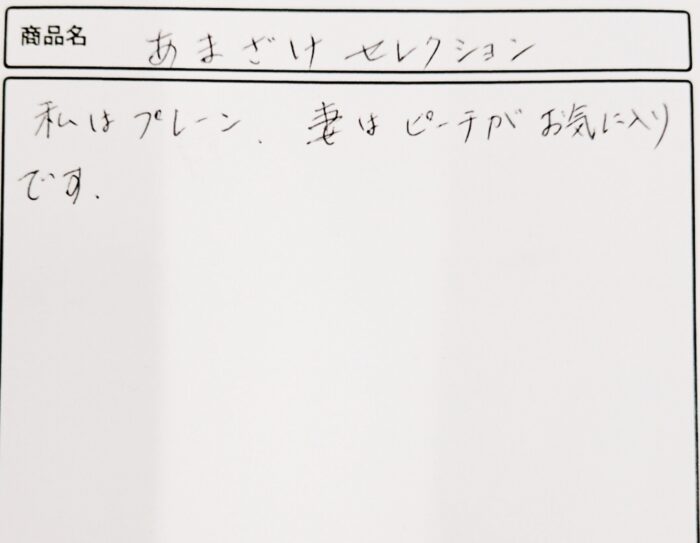 商品名 あまざけ セレクション
私はプレーン、妻はピーチがお気に入り
です.